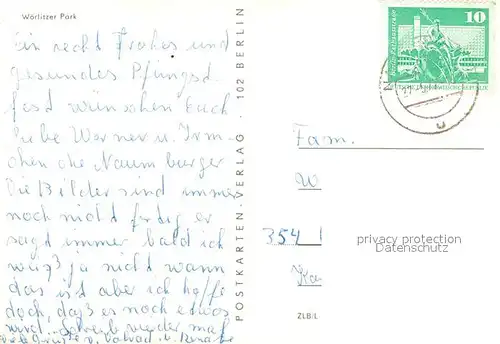 Wörlitzer Park
Ein recht Frohes und
gesundes Pfingst
fest wünschen Euch
liebe Werner u. Irm
chen die Naumburger
Die Bilder sind immer
noch nicht fertig er
sagt immer bald ich
weiß ja nicht wann
das ist aber ich hoffe
doch, daß es noch etwas
wird. Schreib wieder mal
Viele Grüße v. u. Renate
POSTKARTEN-VERLAG · 102 BERLIN
10
DEUTSCHE DEMOKRATISCHE REPUBLIK
Fam.
W
354
privacy protection
Datenschutz
Ka
ZLB/L